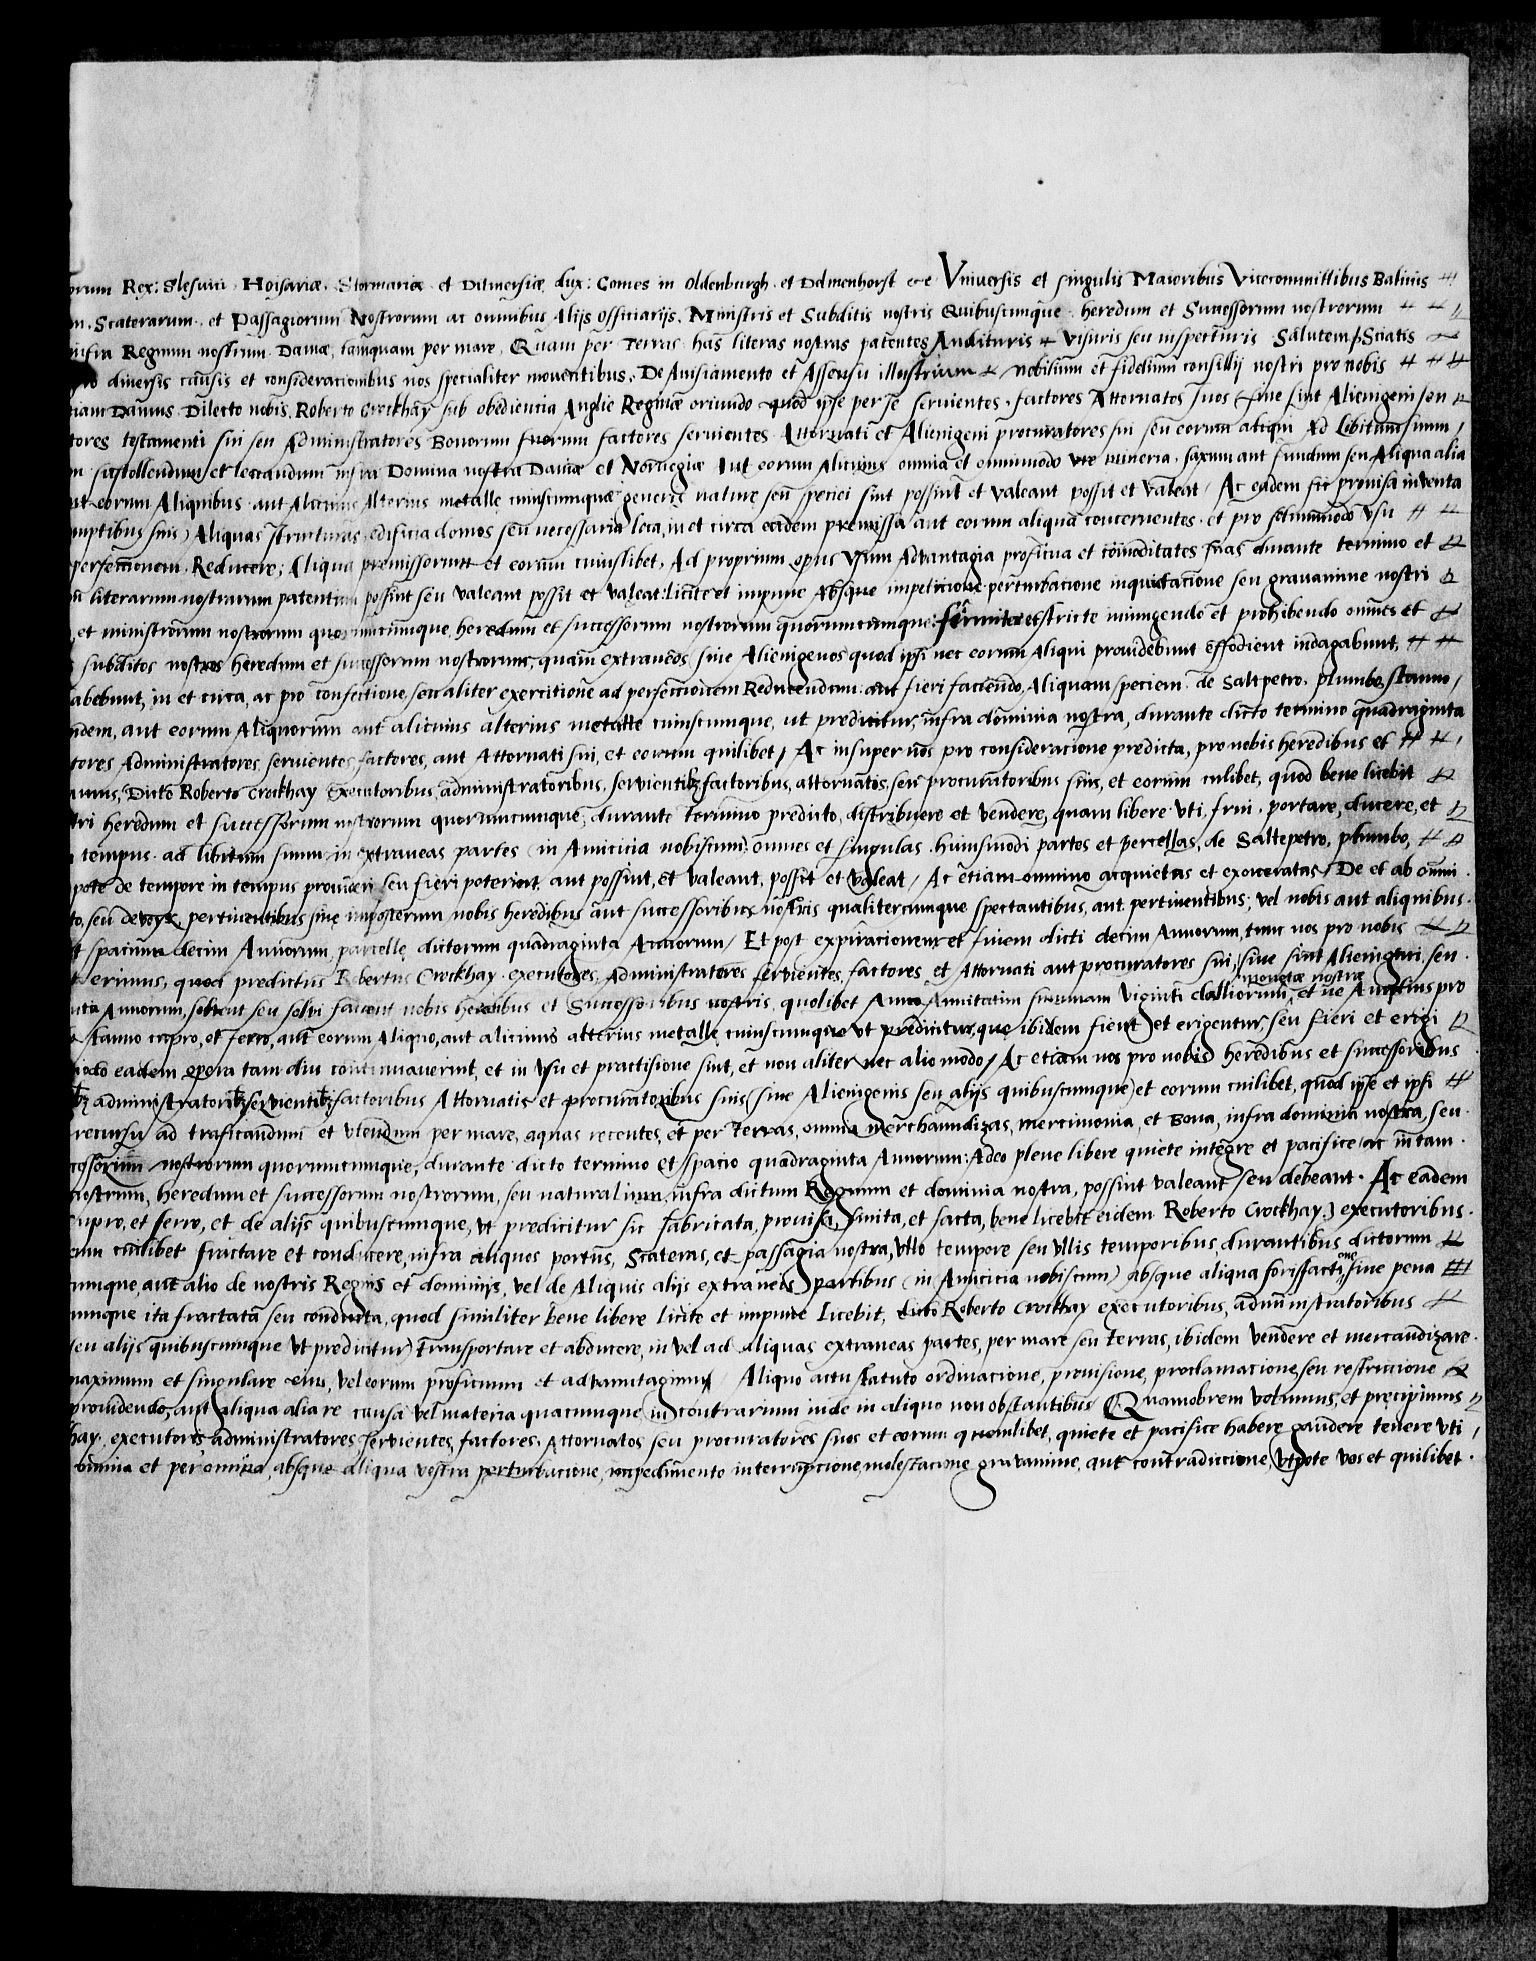 orum Rex: Slesuici. Holsatiæ. Stormariæ et Ditmersiæ dux: Comes in Oldenburgh et Delmenhorst etc Vniuersis et singulis Maioribus Vicecommittibus Baliuis
m. Scaterarum. et Passagiorum Nostrorum ac omnibus Alijs Officiarijs. Ministris et Subditis nostris Quibuscumque. heredum et Successorum nostrorum
infra Regnum nostrum Daniæ, tamquam per mare, Quam per Terras has literas nostras patentes Audituris Visuris seu inspecturis Salutem Sciatis
diuersis causis et consideracionibus nos specialiter mouentibus, De Auisiamento et Assensu illustrium nobilium et fidelium consillij nostri pro nobis
Damus Dilecto nobis, Roberto Crockhay sub obediencia Anglie Reginæ oriundo quod ipse per se seruientes. factores Attornatos suos siue sint Alienigeni seu
tores testamenti sui seu Administratores Bonorum suorum factores seruientes Attornati et Alienigeni procuratores sui seu eorum aliqui Ad Libitum suum,
m sustollendum et leuandum infra Dominia nostra Daniæ et Noruegiæ Aut eorum Alicuius omnia et omnimodo vre mineria, saxum aut fundum seu Aliqua alia
ut eorum Aliquibus aut Alicuius Alterius metalle cuiuscumque generis nature seu speciei sint possint et valeant possit et valeat, Ac eadem sic prouisa inventa
mptibus suis) Aliquas structuras edificia domos seu necessaria loca, in et circa eadem premissa aut eorum aliqua concernentes et pro solummodo vsu
perfeccionem. Reducere; Aliqua premissorum et eorum cuiuslibet, Ad proprium opus vsum Advantagia proficua et comoditates suas durante termino et
literarum nostrarum patentium possint seu valeant possit et valeat: licite et impune Absque impeticione perturbacione inquietacione seu grauamine nostri
, et ministrorum nostrorum quorumcumque, heredum et successorum nostrorum quorumcumque: firmiter et stricte iniungendo et prohibendo omnes et
subditos nostros heredum et successorum nostrorum, quam extraneos siue Alienigenos quod ipsi nec eorum Aliqui prouidebunt effodient indagabunt,
abebunt, in et circa, ac pro confectione, seu aliter exercitione ad perfeccionem Reducendum. aut fieri faciendo, Aliquam speciem de Saltpetro, plumbo, stanno,
idem, aut eorum Aliquorum aut alicuius alterius metalle cuiuscumque, ut predicitur, infra dominia nostra, durante dicto termino quadraginta
tores Administratores, seruientes, factores, aut Attornati sui, et eorum quilibet, Ac insuper nos pro consideracione predicta, pro nobis heredibus et
Dicto Roberto Crockhay Executoribus, administratoribus, seruientibus factoribus, attornatis, seu procuratoribus suis, et eorum cuilibet, quod bene licebit
tri heredum et successorum nostrorum quorumcumque, durante Termino predicto, distribuere et vendere, quam libere vti, frui, portare, ducere, et
tempus ad libitum suum in extraneas partes (in Amicicia nobiscum) omnes et singulas huiusmodi partes et percellas, de Saltepetro, plumbo,
pote de tempore in tempus prouideri seu fieri poterint, aut possint, et valeant, possit et valeat, Ac etiam omnino acquietas et exoneratas, De et ab omni
to, seu pertinentibus siue imposterum nobis heredibus aut successoribus nostris qualitercumque spectantibus, aut pertinentibus; vel nobis aut aliquibus.
t spacium decim Annorum, parcelle dictorum quadraginta Annorum, Et post expiracionem et finem dicti decim Annorum, tunc nos pro nobis
erimus, quod predictus Robertus Crockhay executores, Administratores seruientes, factores et Attornati aut procuratores sui, siue sint Alienigeni, seu
nta Annorum, soluent seu solui facient nobis heredibus et Successoribus nostris, quolibet Anno Annuatim summam viginti dalliorum monetæ nostræ, et ne pro
stanno cupro, et ferro, aut eorum Aliquo, aut alicuius alterius metalle, cuiuscumque vt predicitur, que ibidem fient et erigentur, seu fieri et erigi
modo eadem opera tam diu continuauerint, et in vsu et practisione sint, et non aliter nec alio modo, Ac etiam nos pro nobis heredibus et successoribus
administratoribus, seruientibus, factoribus Attornatis et procuratoribus suis (siue Alienigenis seu alijs quibuscumque) et eorum cuilibet, quod ipse et ipsi
recursu ad traficandum et vtendum per mare, aquas recentes, et per Terras, omnia merchaundizas, mercimonia, et Bona, infra dominia nostra, seu
cessorum nostrorum quorumcumque, durante dicto termino et spacio quadraginta Annorum: Adeo plene libere quiete integre et pacifice ac in tam
nostrum, heredum et successorum nostrorum, seu naturalium infra dictum Regnum et dominia nostra, possint valeant seu debeant. Ac eadem
cupro, et ferro, et de alijs quibuscumque, vt predicitur sic fabricata, prouisa, finita, et facta, bene licebit eidem Roberto Crockhay executoribus.
cuilibet fractare et conducere, infra aliquos portus, Scateras, et passagia nostra, vllo tempore seu vllis temporibus durantibus dictorum
cumque, aut alio de nostris Regnis et dominijs, vel de Aliquis alijs extraneis partibus (in Amicicia nobiscum) absque aliqua forisfactione siue pena
umque ita fractata seu conducta, quod similiter bene libere licite et impune Licebit, dicto Roberto Crockhay executoribus, administratoribus
seu alijs quibuscumque vt predicitur) transportare et abducere, in vel ad aliquas extraneas partes, per mare seu terras, ibidem vendere et mercandizare.
maximum et singulare eius, vel eorum proficuum et advantagium, Aliquo actu statuto ordinacione, prouisione, proclamacione, seu restriccione
prouidendo, aut aliqua alia re causa vel materia quacumque in contrarium inde in aliquo non obstantibus Quamobrem volumus, et precipimus
hay, executores administratores seruientes, factores, Attornatos seu procuratores suos et eorum quemlibet, quiete et pacifice habere gaudere tenere vti
omnia et per omnia, absque aliqua vestra perturbacione, impedimento interrupcione, molestacione grauamine, aut contradiccione, vtpote vos et quilibet.